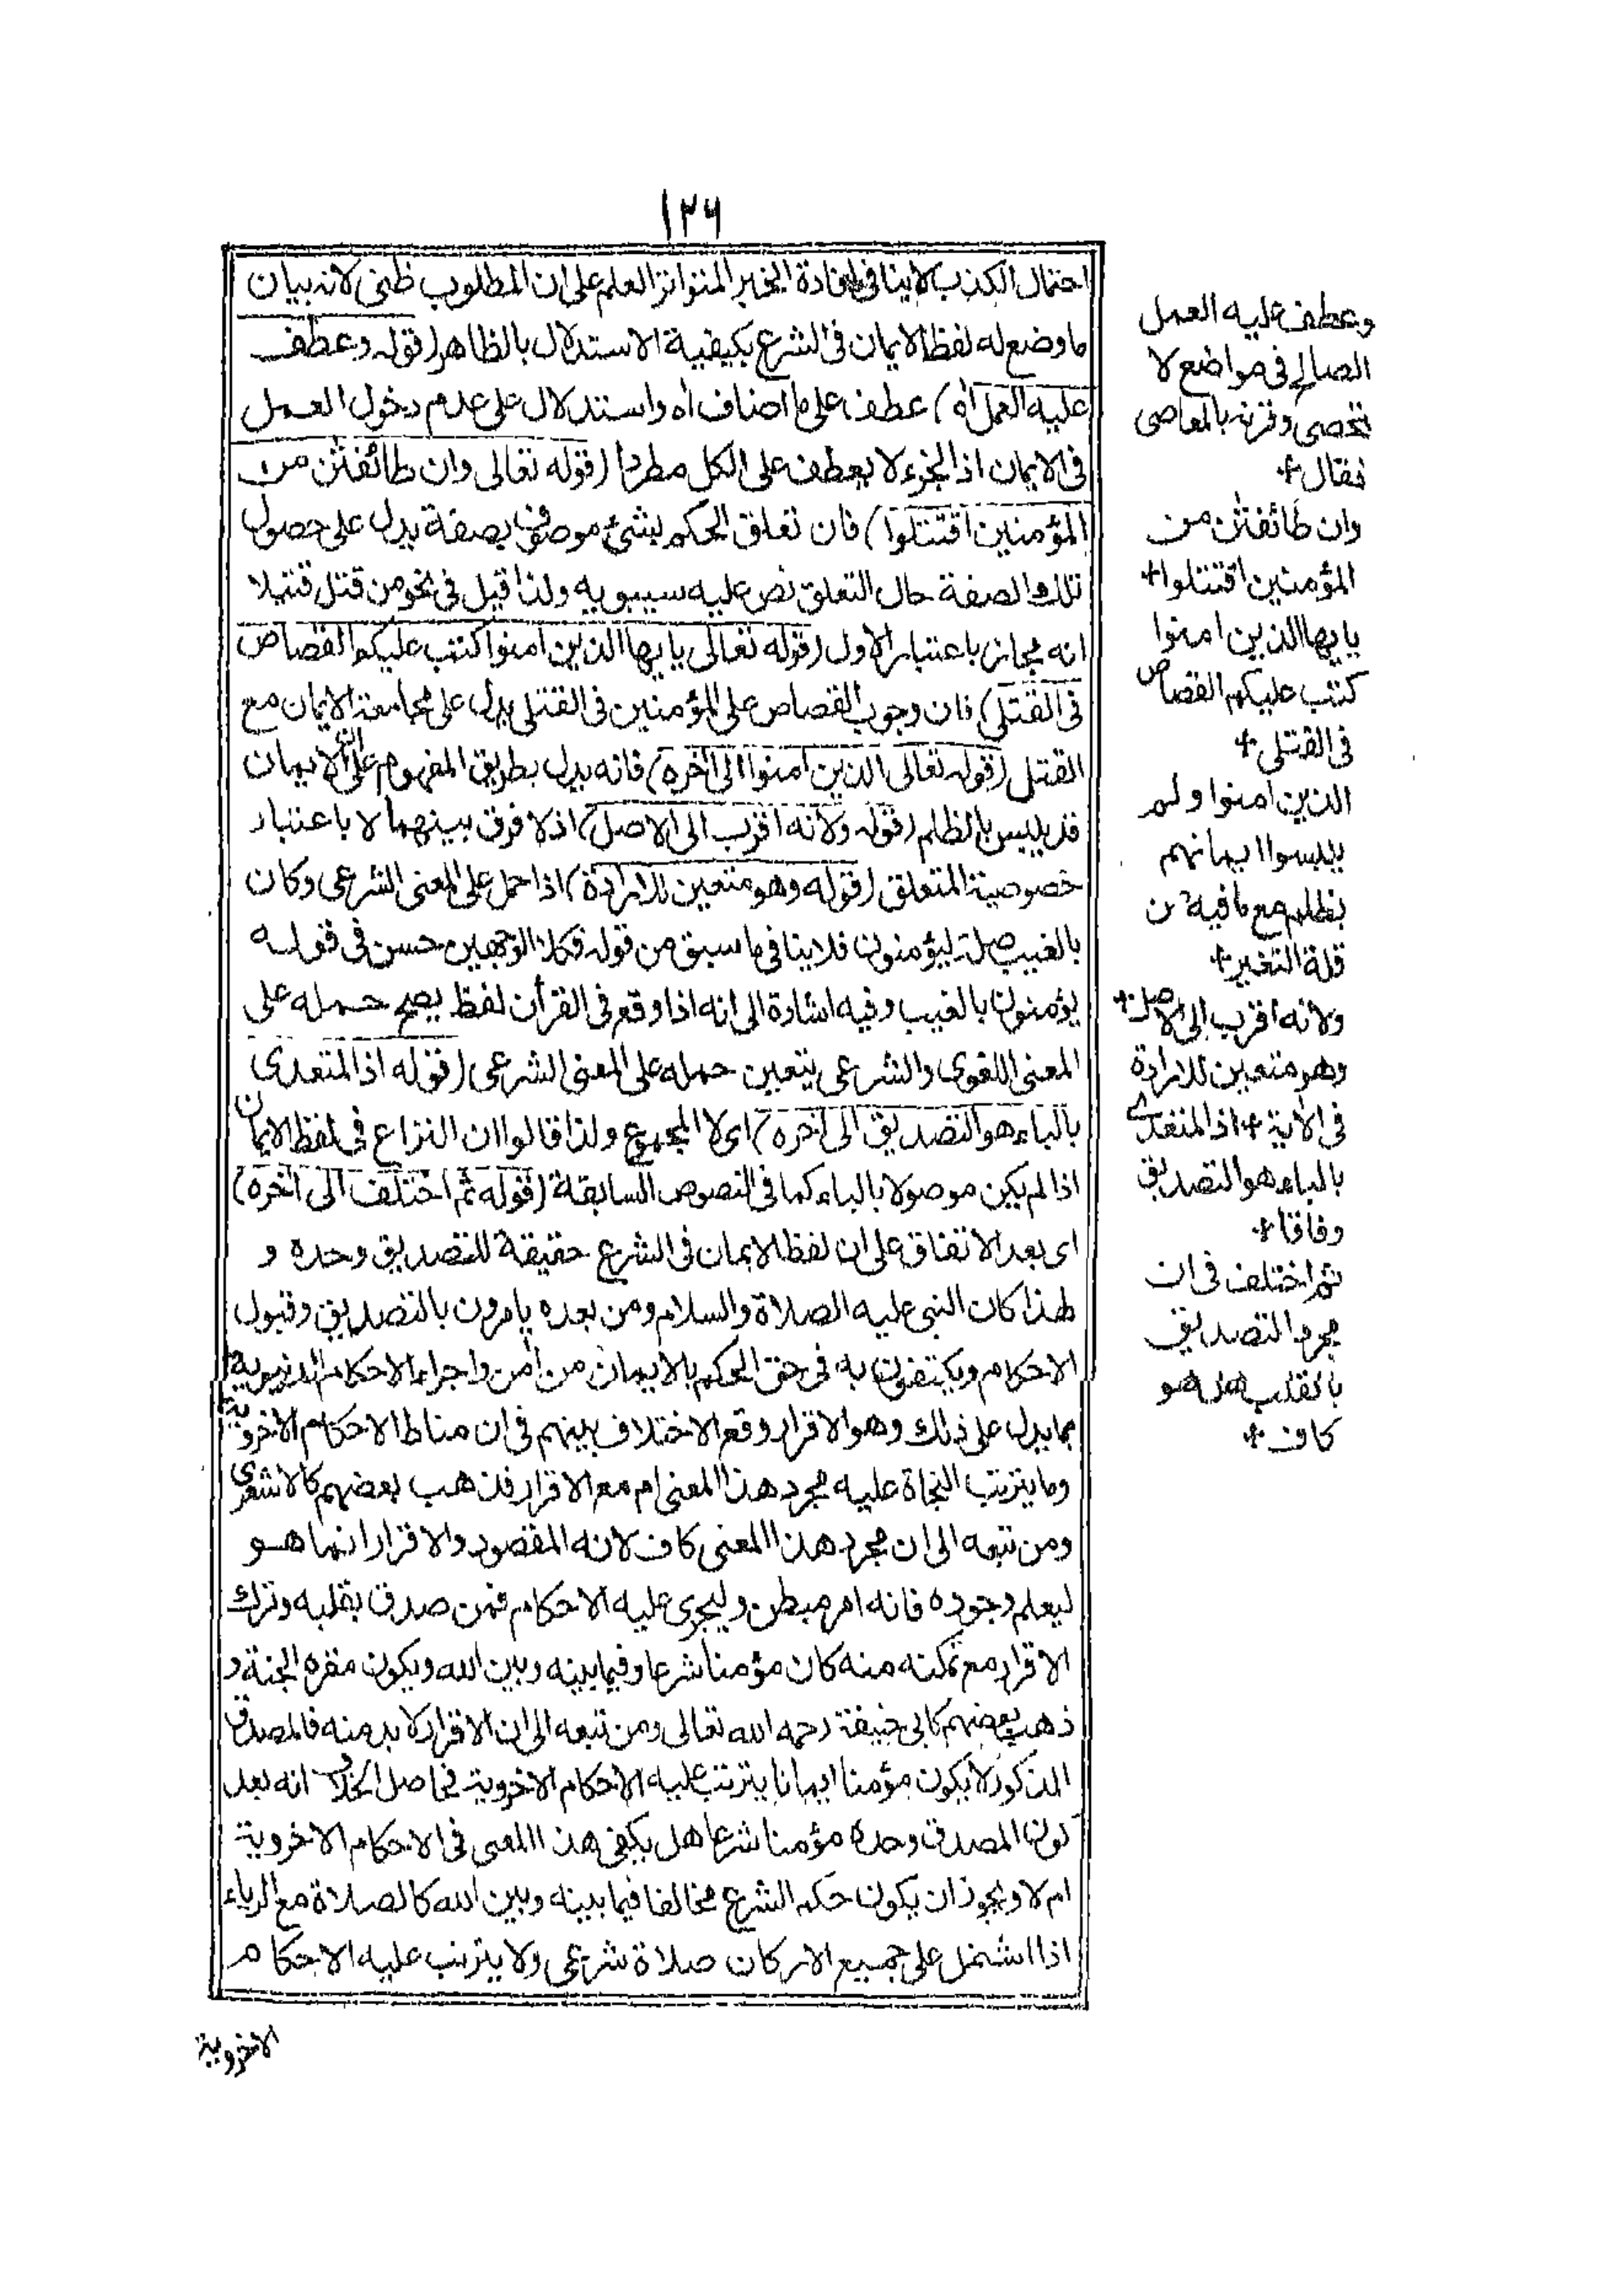 ١٢٦
احتمال الكذب لا ينافي افادة الخبر المتواتر العلم على ان المطلوب ظني لانه بيان
ما وضع له لفظ الايمان في الشرع بكيفية الاستدلال بالظاهر (قوله وعطف
عليه العمل اه) عطف على ما اضاف اه واستدلال على عدم دخول العمل
في الايمان اذ الجزء لا يعطف على الكل مطردا (قوله تعالى وان طائفتٰن من
المؤمنين اقتتلوا) فان تعلق الحكم بشئ موصوف بصفة يدل على حصول
تلك الصفة حال التعلق نص عليه سيبويه ولذا قيل في نحو من قتل قتيلا
انه مجاز باعتبار الاول (قوله تعالى يا يها الذين امنوا كتب عليكم القصاص
في القتلى) فان وجوب القصاص على المؤمنين في القتلى يدل على مجامعة الايمان مع
القتل (قوله تعالى الذين امنوا الى اخره) فانه يدل بطريق المفهوم على ان الايمان
قد يلبس بالظلم (قوله ولانه اقرب الى الاصل) اذ لا فرق بينهما الا باعتبار
خصوصية المتعلق (قوله وهو متعين للارادة) اذا حمل على المعنى الشرعي وكان
بالغيب صلة ليؤمنون فلا ينافي ما سبق من قوله فكلا الوجهين حسن في قوله
يؤمنون بالغيب وفيه اشارة الى انه اذا وقع في القرأن لفظ يصح حمله على
المعنى اللغوي والشرعي يتعين حمله على المعنى الشرعي (قوله اذ المتعدى
بالباء هو التصديق الى اخره) اى لا المجموع ولذا قالوا ان النزاع في لفظ الايمان
اذا لم يكن موصولا بالباء كما في النصوص السابقة (قوله ثم اختلف الى اخره)
اى بعد الاتفاق على ان لفظ الايمان في الشرع حقيقة للتصديق وحده و
لهذا كان النبي عليه الصلاة والسلام ومن بعده يامرون بالتصديق وقبول
الاحكام ويكتفون به في حق الحكم بالايمان من أمن واجراء الاحكام الدنيوية
بما يدل على ذلك وهو الاقرار وقع الاختلاف بينهم في ان مناط الاحكام الاخروية
وما يترتب النجاة عليه مجرد هذا المعنى ام مع الاقرار فذهب بعضهم كالاشعرى
ومن تبعه الى ان مجرد هذا المعنى كاف لانه المقصود والاقرار انما هو
ليعلم وجوده فانه امر مبطن وليجرى عليه الاحكام فمن صدق بقلبه وترك
الاقرار مع تمكنه منه كان مؤمنا شرعا وفيما بينه وبين الله ويكون مقره الجنة و
ذهب بعضهم كابي حنيفة رحمه الله تعالى ومن تبعه الى ان الاقرار لا بد منه فالمصدق
المذكور لا يكون مؤمنا ايمانا يترتب عليه الاحكام الاخروية فحاصل الخلاف انه بعد
كون المصدق وحده مؤمنا شرعا هل يكفى هذا المعنى في الاحكام الاخروية
ام لا ويجوز ان يكون حكم الشرع مخالفا فيما بينه وبين الله كالصلاة مع الرياء
اذا اشتمل على جميع الاركان صلاة شرعى ولا يترتب عليه الاحكام
الاخروية
وعطف عليه العمل
الصالح في مواضع لا
تحصى وقرنه بالمعاصى
فقال+
وان طائفتٰن من
المؤمنين اقتتلوا+
يا يها الذين امنوا
كتب عليكم القصاص
في القتلى+
الذين امنوا ولم
يلبسوا ايمانهم
بظلم مع ما فيه من
قلة التغير+
ولانه اقرب الى الاصل+
وهو متعين للارادة
في الأية+ اذ المتعدى
بالباء هو التصديق
وفاقا+
ثم اختلف في ان
مجرد التصديق
بالقلب هل هو
كاف+